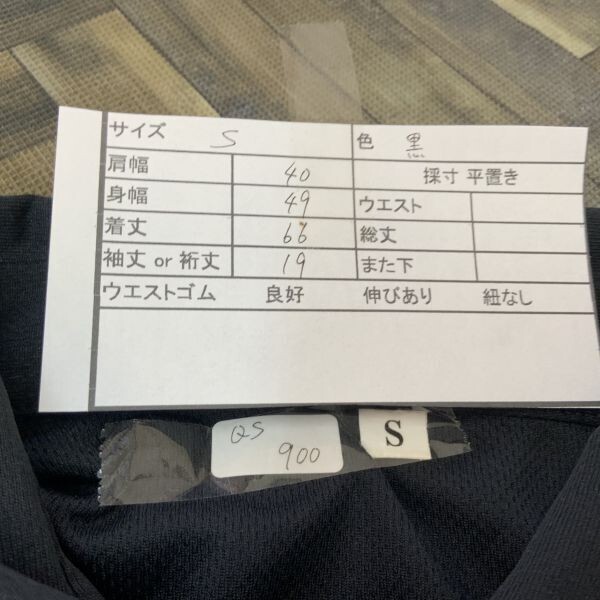 サイズ S 色 黒
肩幅 40 採寸 平置き
身幅 49 ウエスト
着丈 66 総丈
袖丈 or 裄丈 19 また下
ウエストゴム 良好 伸びあり 紐なし
QS
900
S